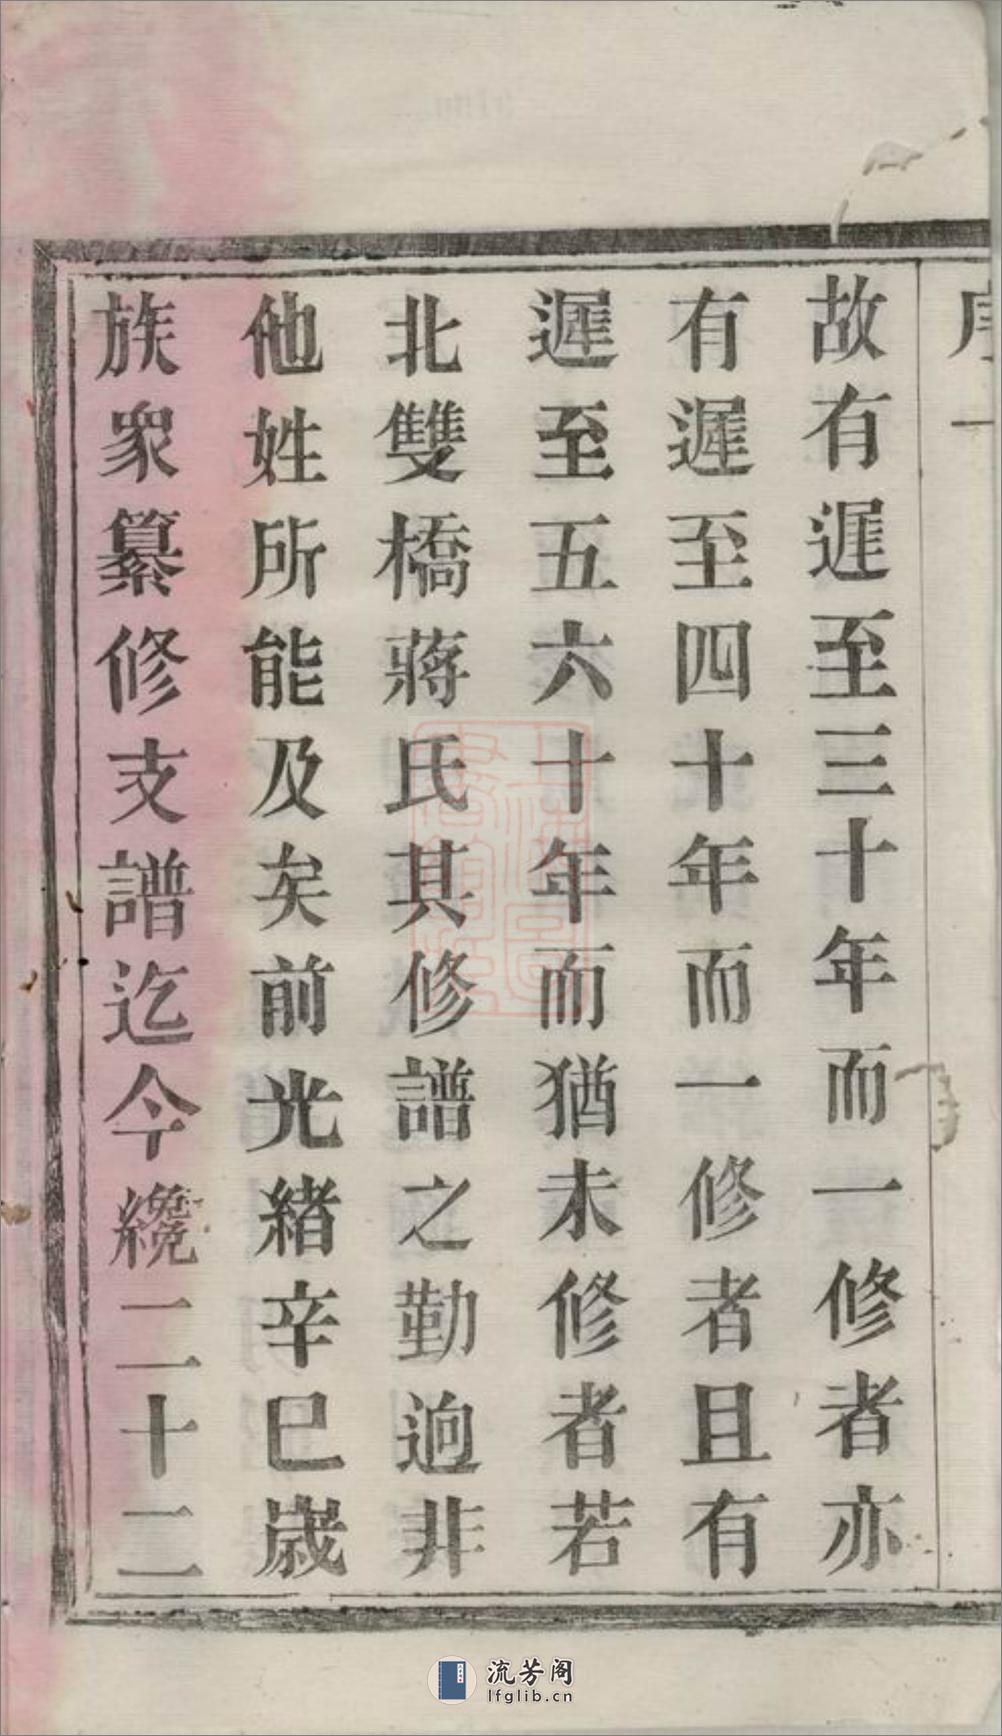 序一
故有遲至三十年而一修者亦
有遲至四十年而一修者且有
遲至五六十年而猶未修者若
北雙橋蔣氏其修譜之勤逈非
他姓所能及矣前光緒辛巳歲
族眾纂修支譜迄今纔二十二
流芳阁
lfglib.cn